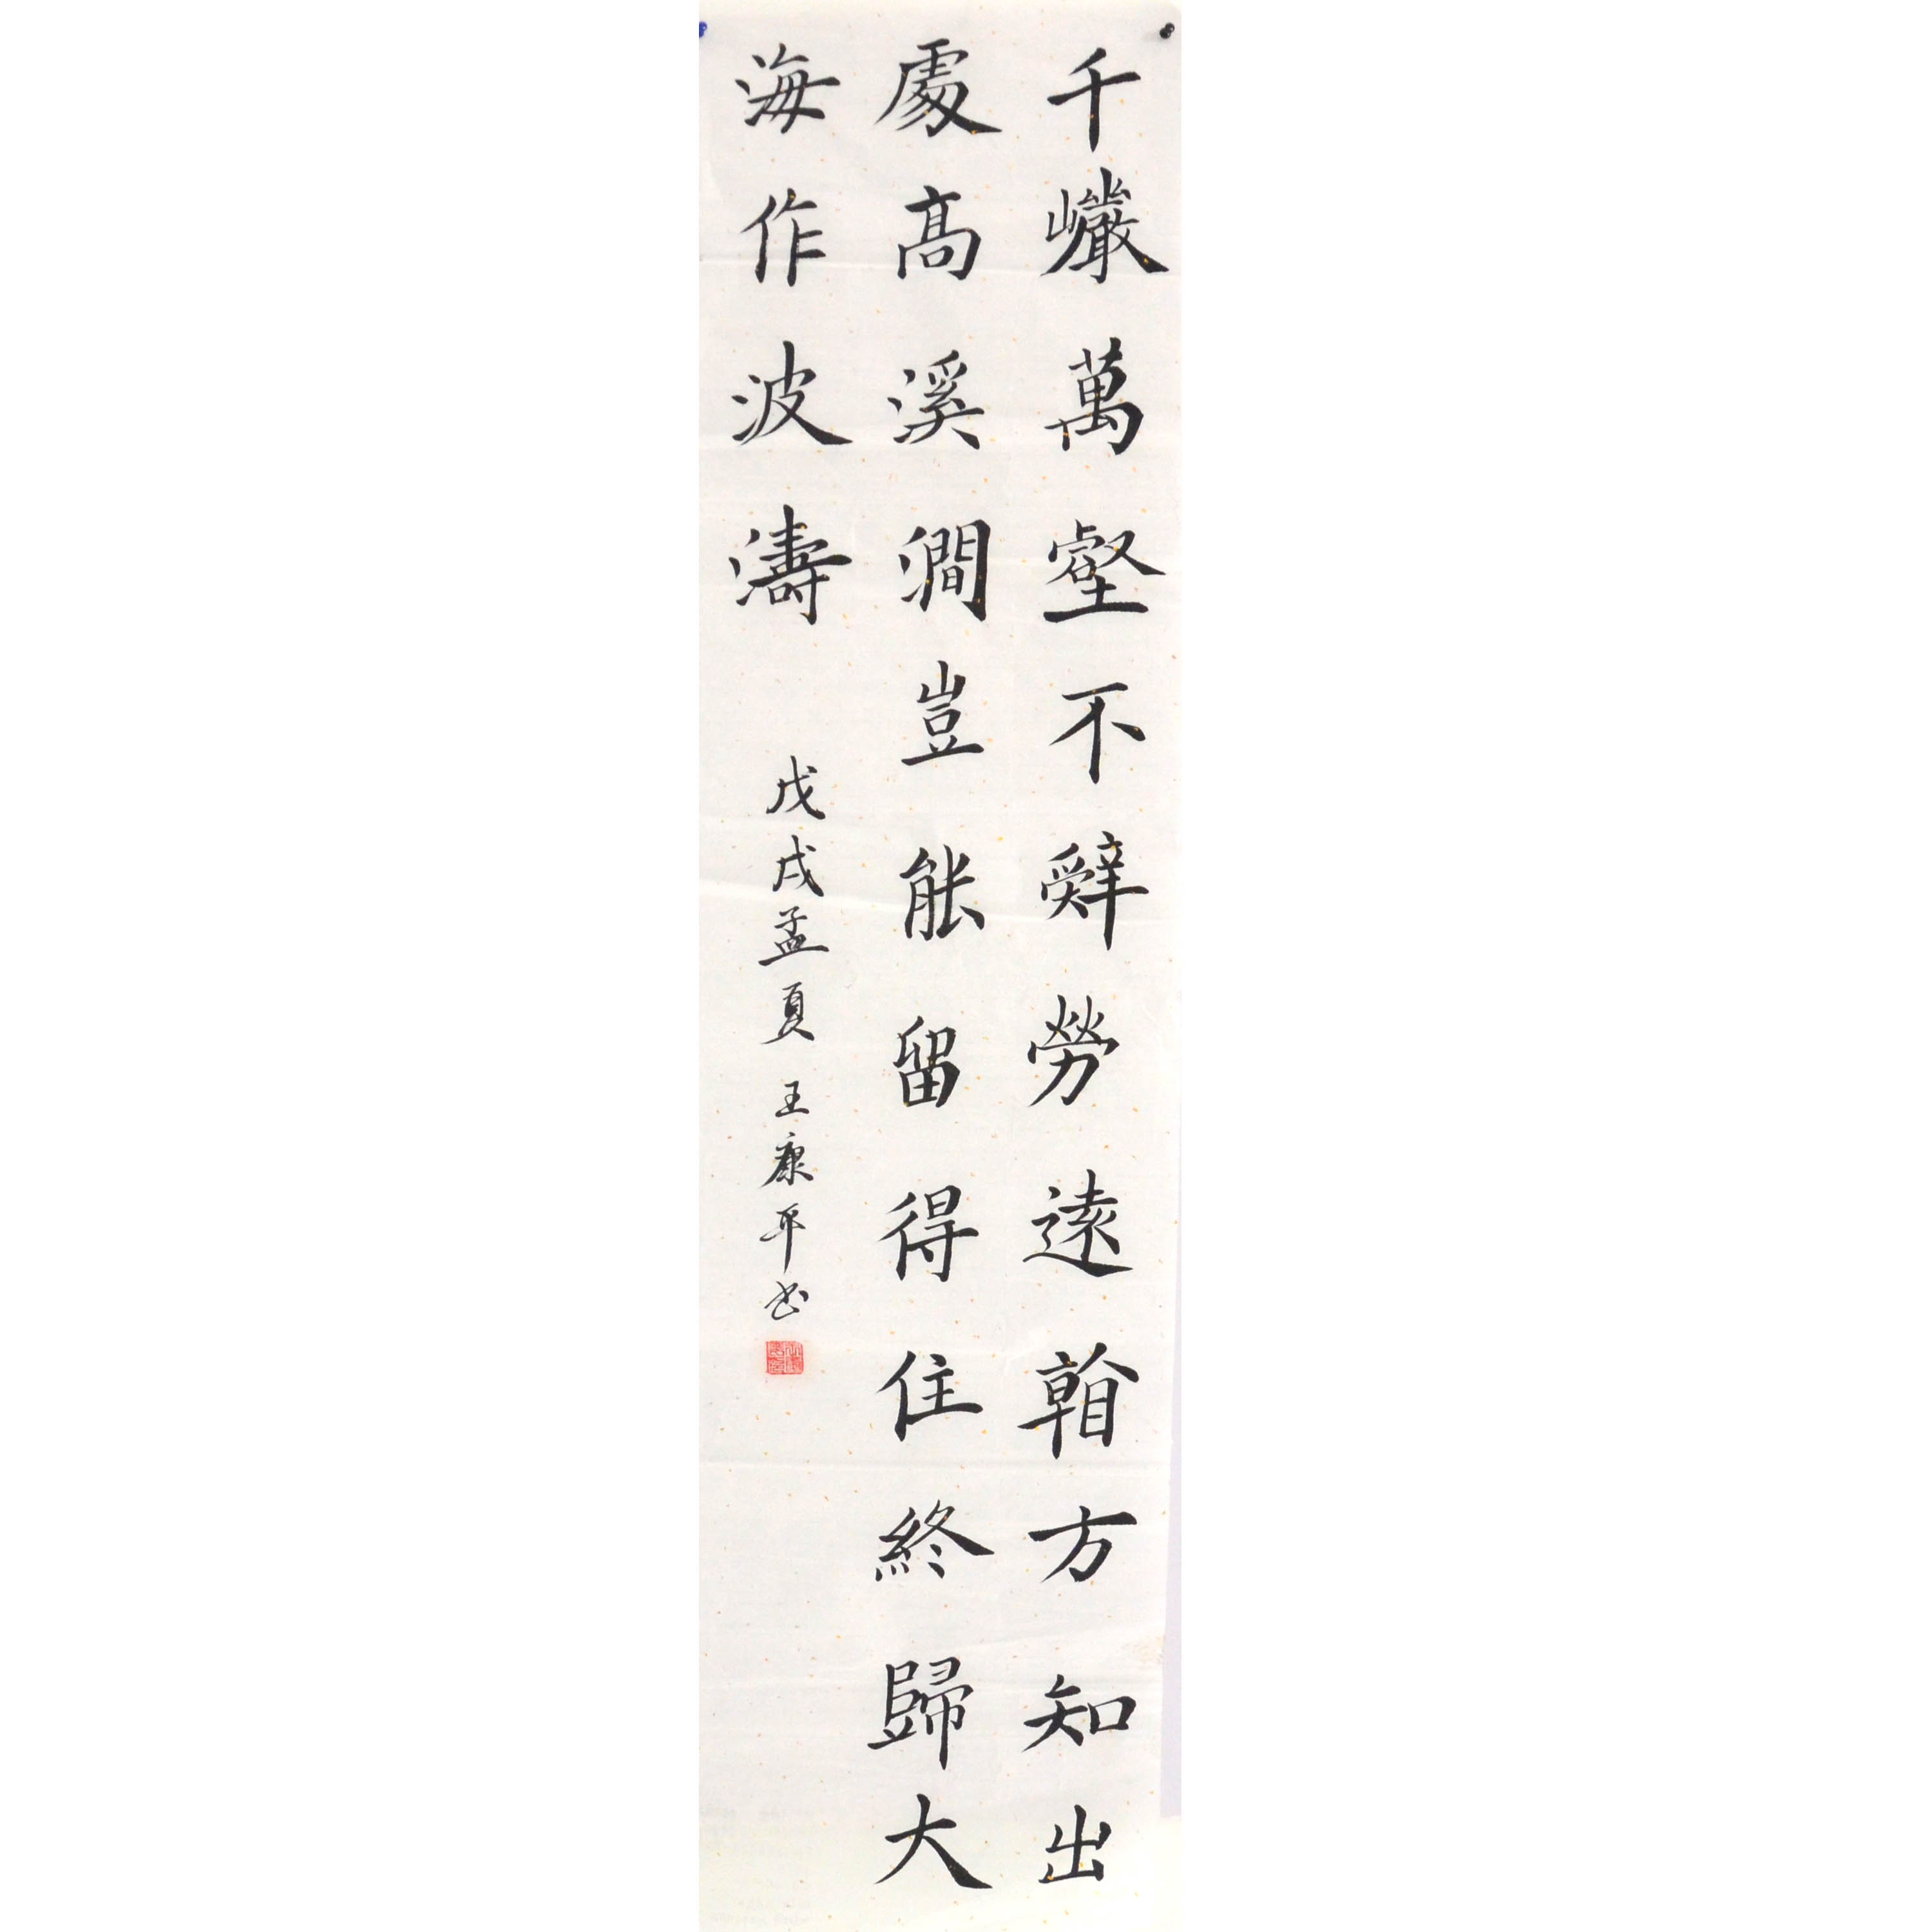 千巗萬壑不辭勞遠看方知出
處高溪澗豈能留得住終歸大
海作波濤
戊戌孟夏 王康平书